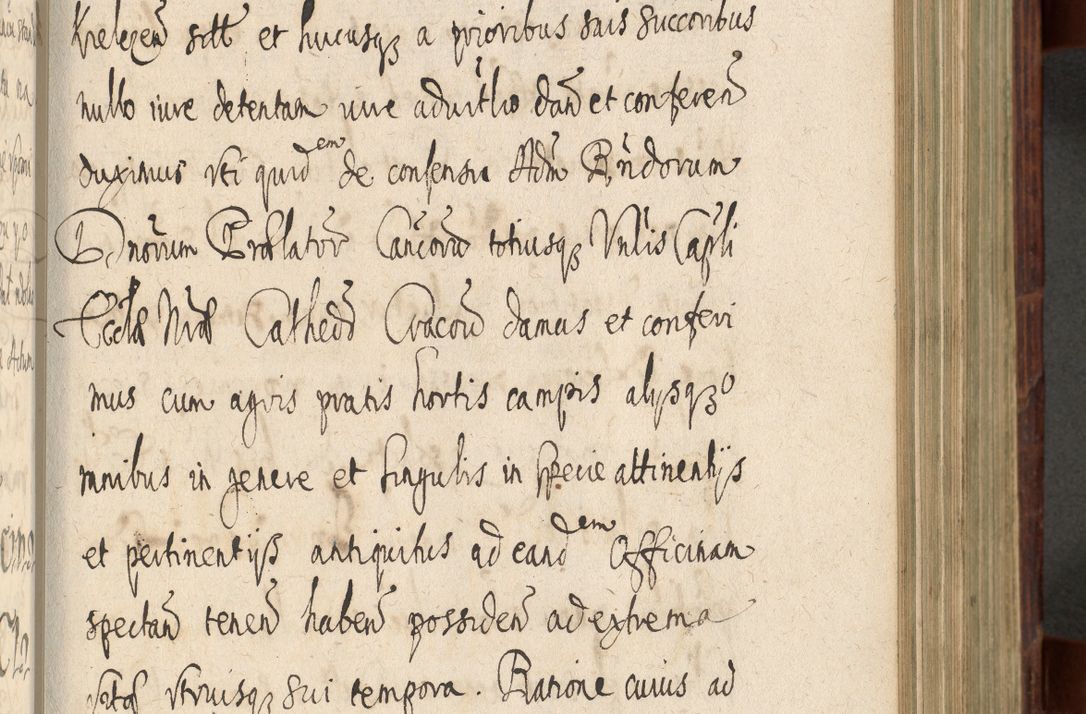 sitt et hucusq3 a prioribus suis succoribus
nullo iure detentam iure aduitlio dan̄ et conferen̄
duximus vti quidem de consensu Adm̄ R̄ndorum
Dnorum Prælator̄ Canicor̄ totiusq3 Vnlis Capli
Ecclæ Nræ Cathedr̄ Cracou̅ damus et conferi
mus cum agris pratis hortis campis alysq3 o
mnibus in genere et singulis in specie attinentijs
et pertinentijs antiquitus ad eandem Officinam
spectan̄ tenen̄ haben̄ possiden̄ ad extrema
vitæ vtriusq3 sui tempora. Ratione cuius ad